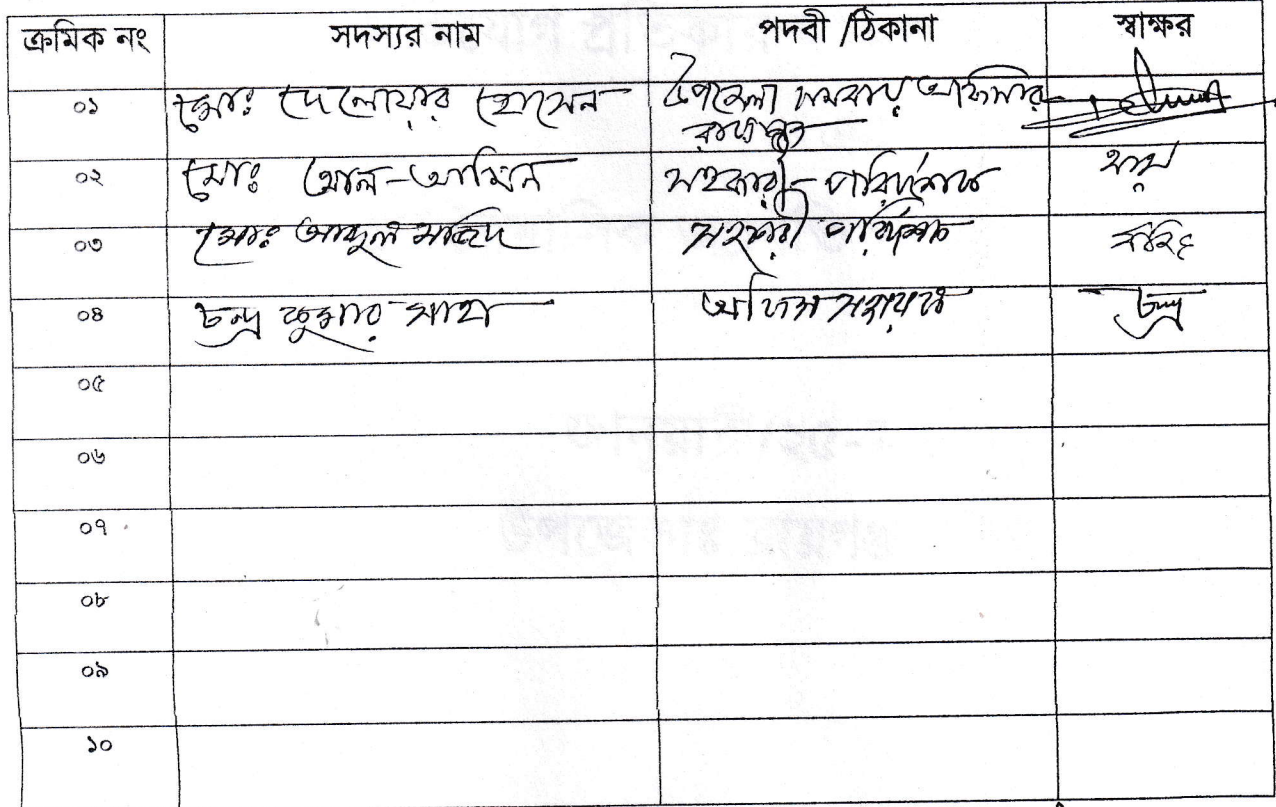 ক্রমিক নং সদস্যর নাম পদবী /ঠিকানা স্বাক্ষর
০১ মোঃ দেলোয়ার হোসেন উপজেলা সমবায় অফিসার
০২ মোঃ আল-আমিন সহকারী পরিদর্শক
০৩ মোঃ আব্দুল মজিদ সহকারী পরিদর্শক
০৪ চন্দ্র কুমার সাহা অফিস সহায়ক চন্দ্র
০৫
০৬
০৭
০৮
০৯
১০